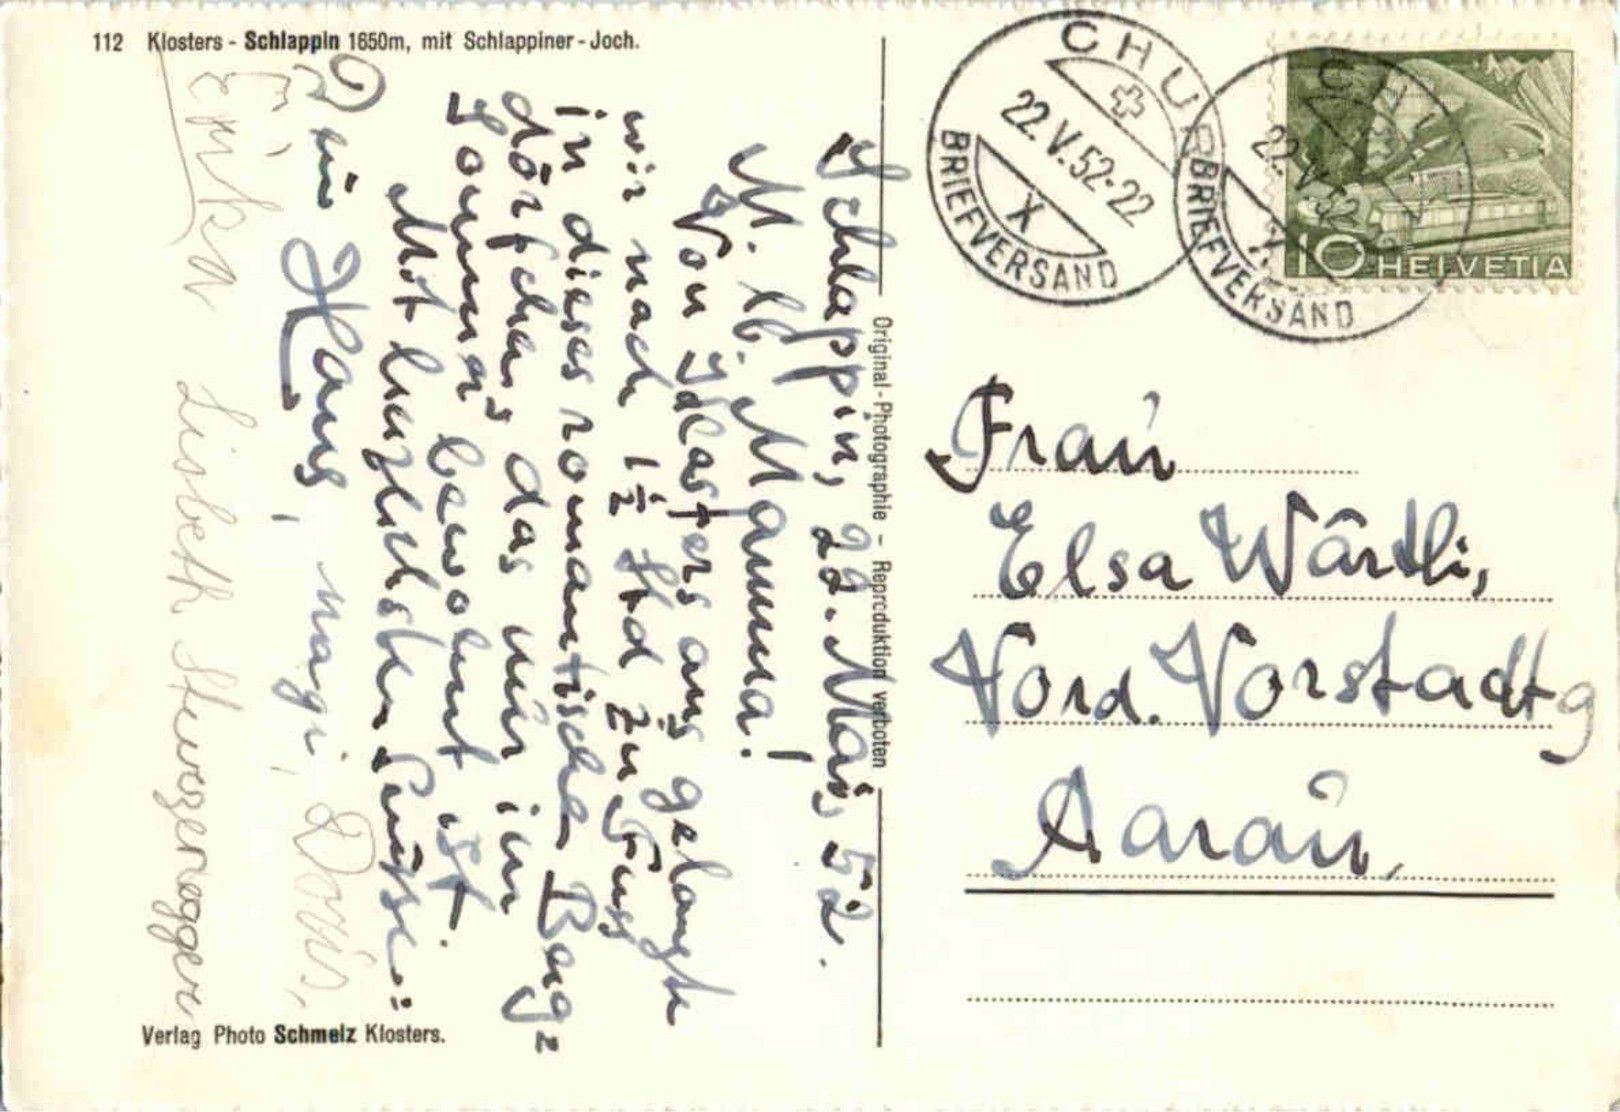 112 Klosters - Schlappin 1650m, mit Schlappiner-Joch.
Schlappin, 22. Mai, 52.
M. lb. Mamma!
Von Klosters aus gelangte
wir nach 1½ Std zu Fuss
in dieses romantische Berg=
dörfchen, das nur im
Sommer bewohnt ist.
Mit herzlichsten Grüssen:
Dein Hans, magi, Doris,
Erika Lisbeth
Verlag Photo Schmelz Klosters.
Original-Photographie - Reproduktion verboten
CHUR
22.V.52-22
X
BRIEFVERSAND
CHUR
22.V.52-22
BRIEFVERSAND
10 HELVETIA
Frau
Elsa Wärtli,
Vord. Vorstadt 9
Aarau,